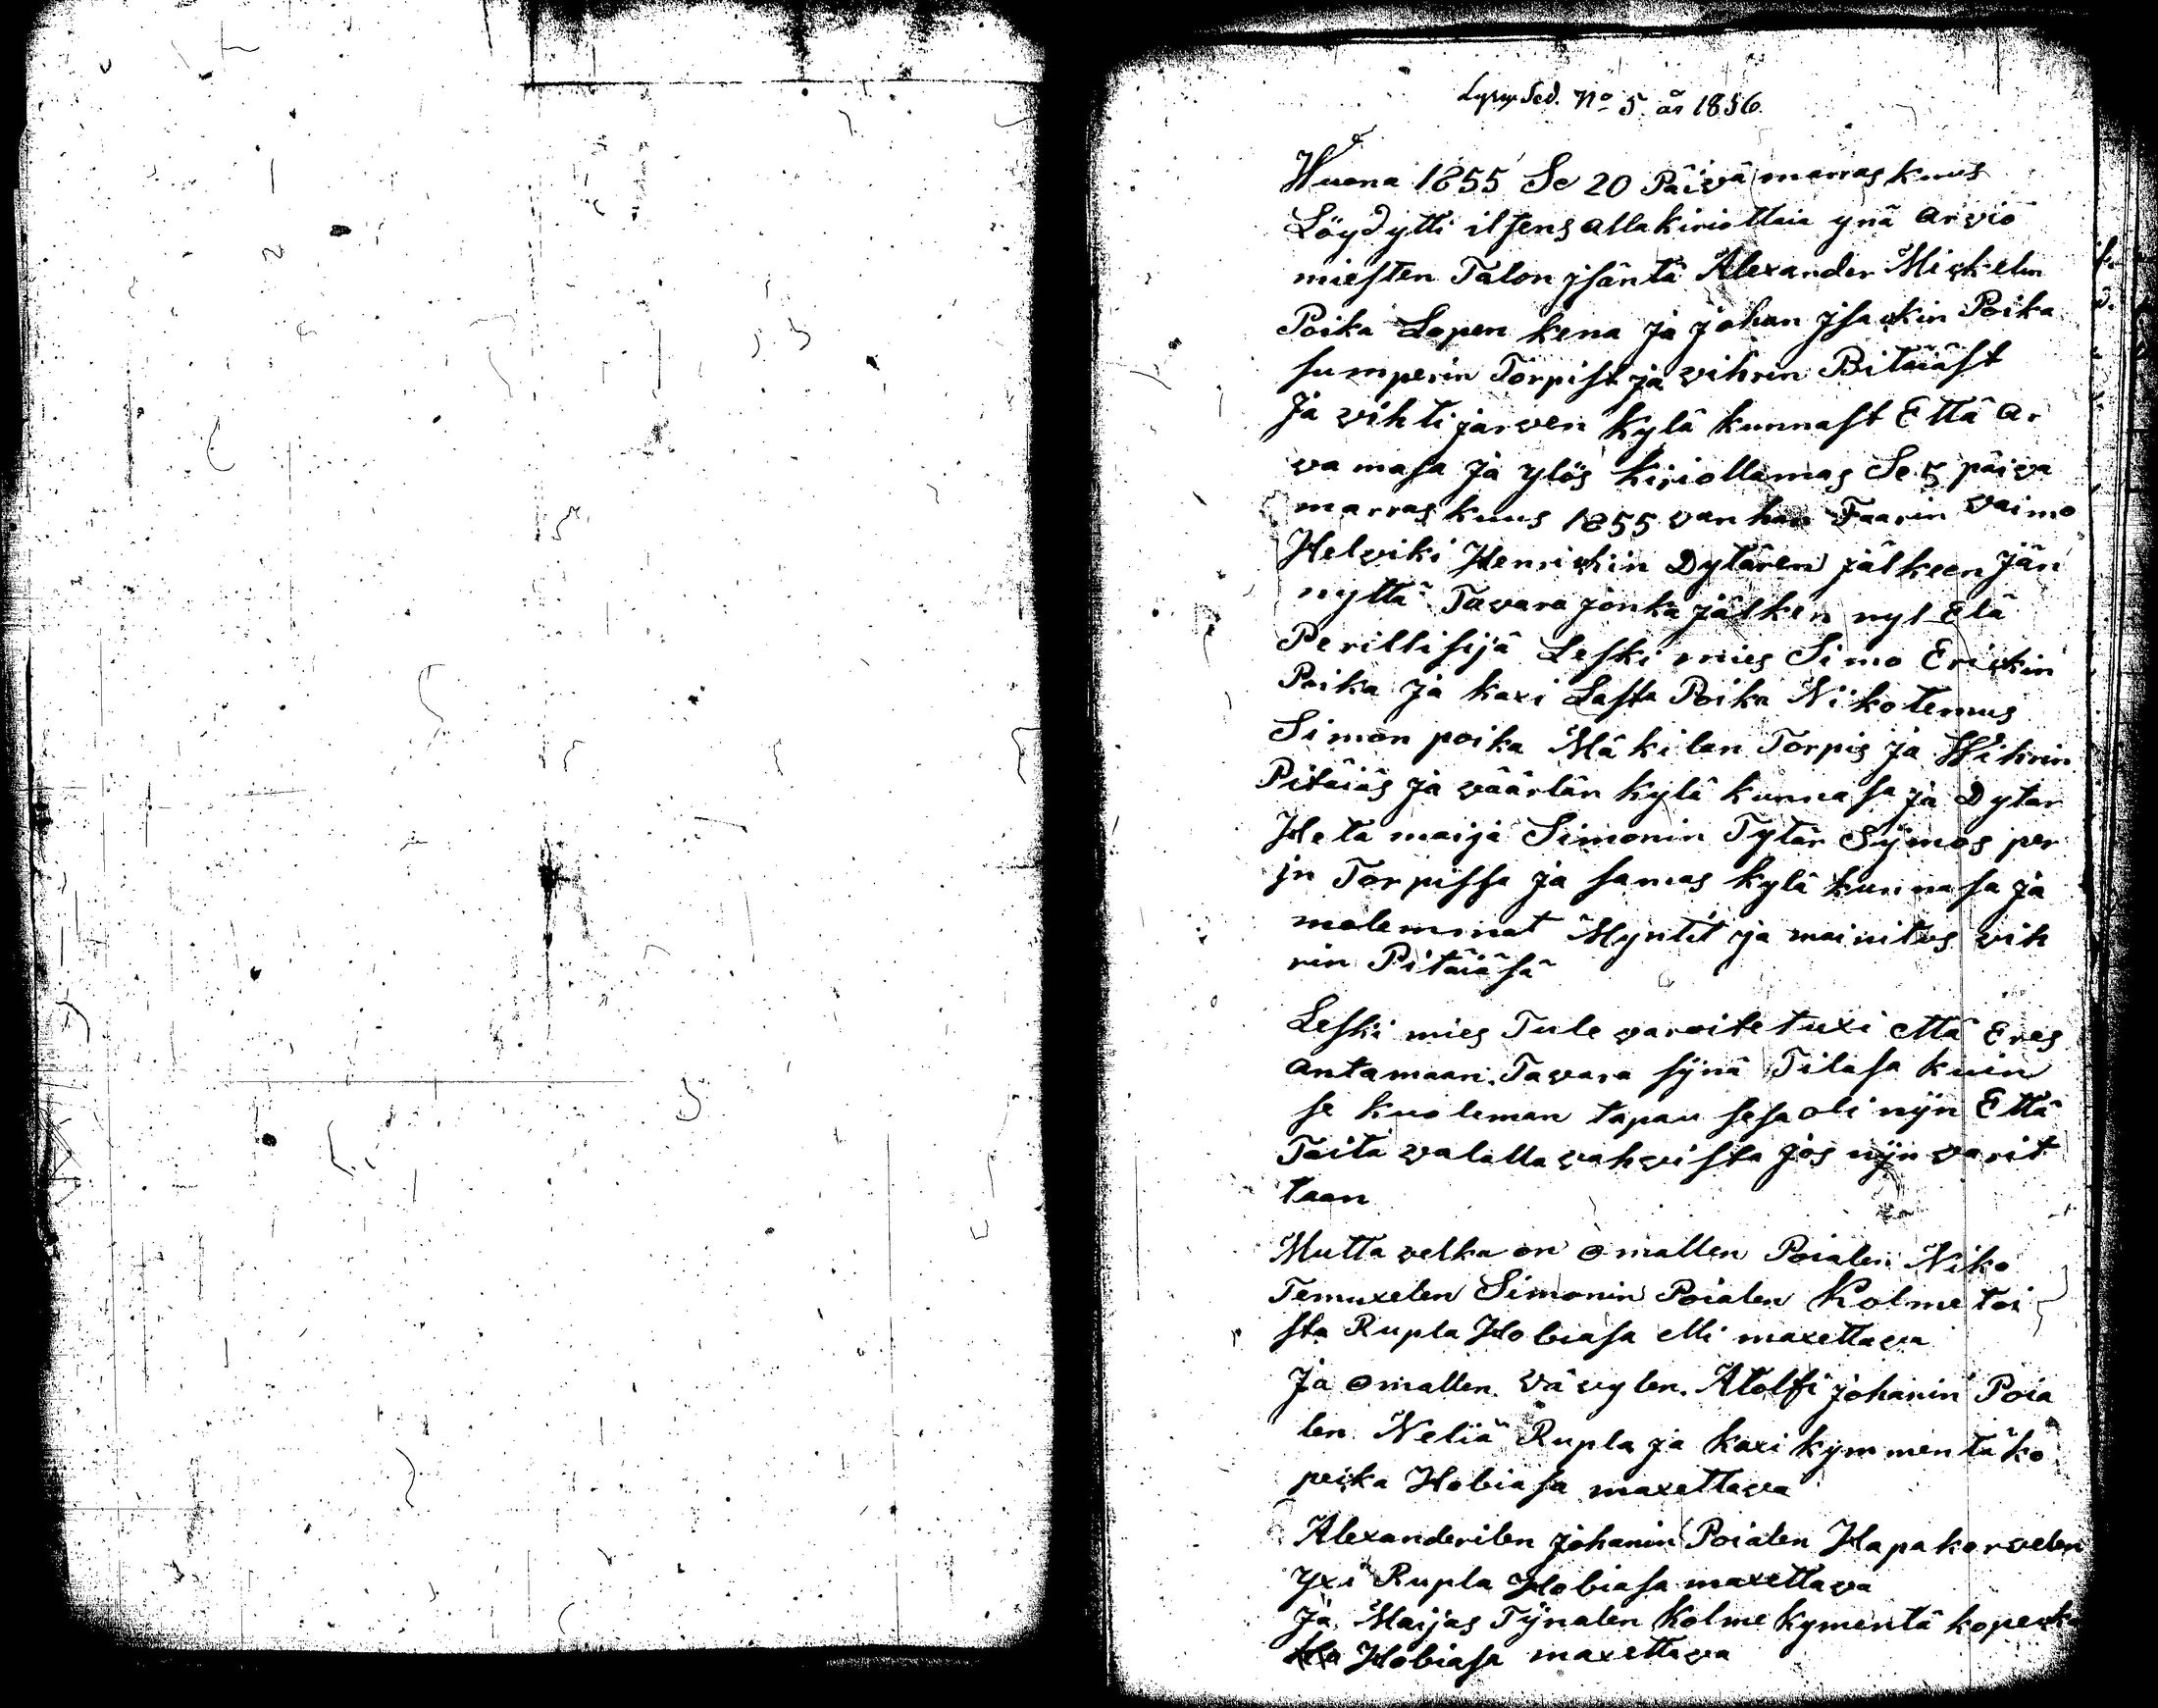 No 5 år 1856.
Wuona 1855 Se 20 Päivä marras kuus
Löydytti itsens allakiriottaia ynä arvio
miesten Talon jsäntä Alexander Mickelin
Poika Lopen kena ja johan jsackin Poika
sumperin Torpist ja vihrin Pitäiäst
Ja vihtijärven kylä kunnast Että ar
va masa ja ylös kiriottamas Se 5 päiva
marras kuus 1855 van han Faarin vaimo
Helviki Henrickin Dytären jälkeen jän
nyttä Tavara jonka jälken nyt Elä
Perillisijä Leski mies Simo Erickin
Poika ja kaxi Lasta Poika Nikotemus
Simon poika Mäkilan Torpis ja Wihrin
Pitäiäs ja väärlän kylä kunnasa ja Dytär
Heta maija Simonin Tytär Symos per
jn Torpissa ja samas kylä kunnasa ja
molemmat Myntit ja mainitus vih
rin Pitäiäsä
Leski mies Tule varoitetuxi että Eres
antamaan Tavara synä Tilasa kuin
se kuoleman tapau sesa oli nijn Että
Taita valalla vahvista jos nijn varit
taan
Mutta velka on omallen Poialen Niko
Temuxelen Simonin Poialen Kolme toi
sta Rupla Hobiasa elli maxettava
Ja omallen vävylen Atolfi johanin Poia
len Neliä Rupla ja kaxi kymmentä ko
peika Hobiasa maxettava
Alexanderilen johanin Poialen Hapakorvelen
yxi Rupla Hobiasa maxettava
Ja Maijas Tynalen kolme kymentä kopeika
Hobiasa maxettava